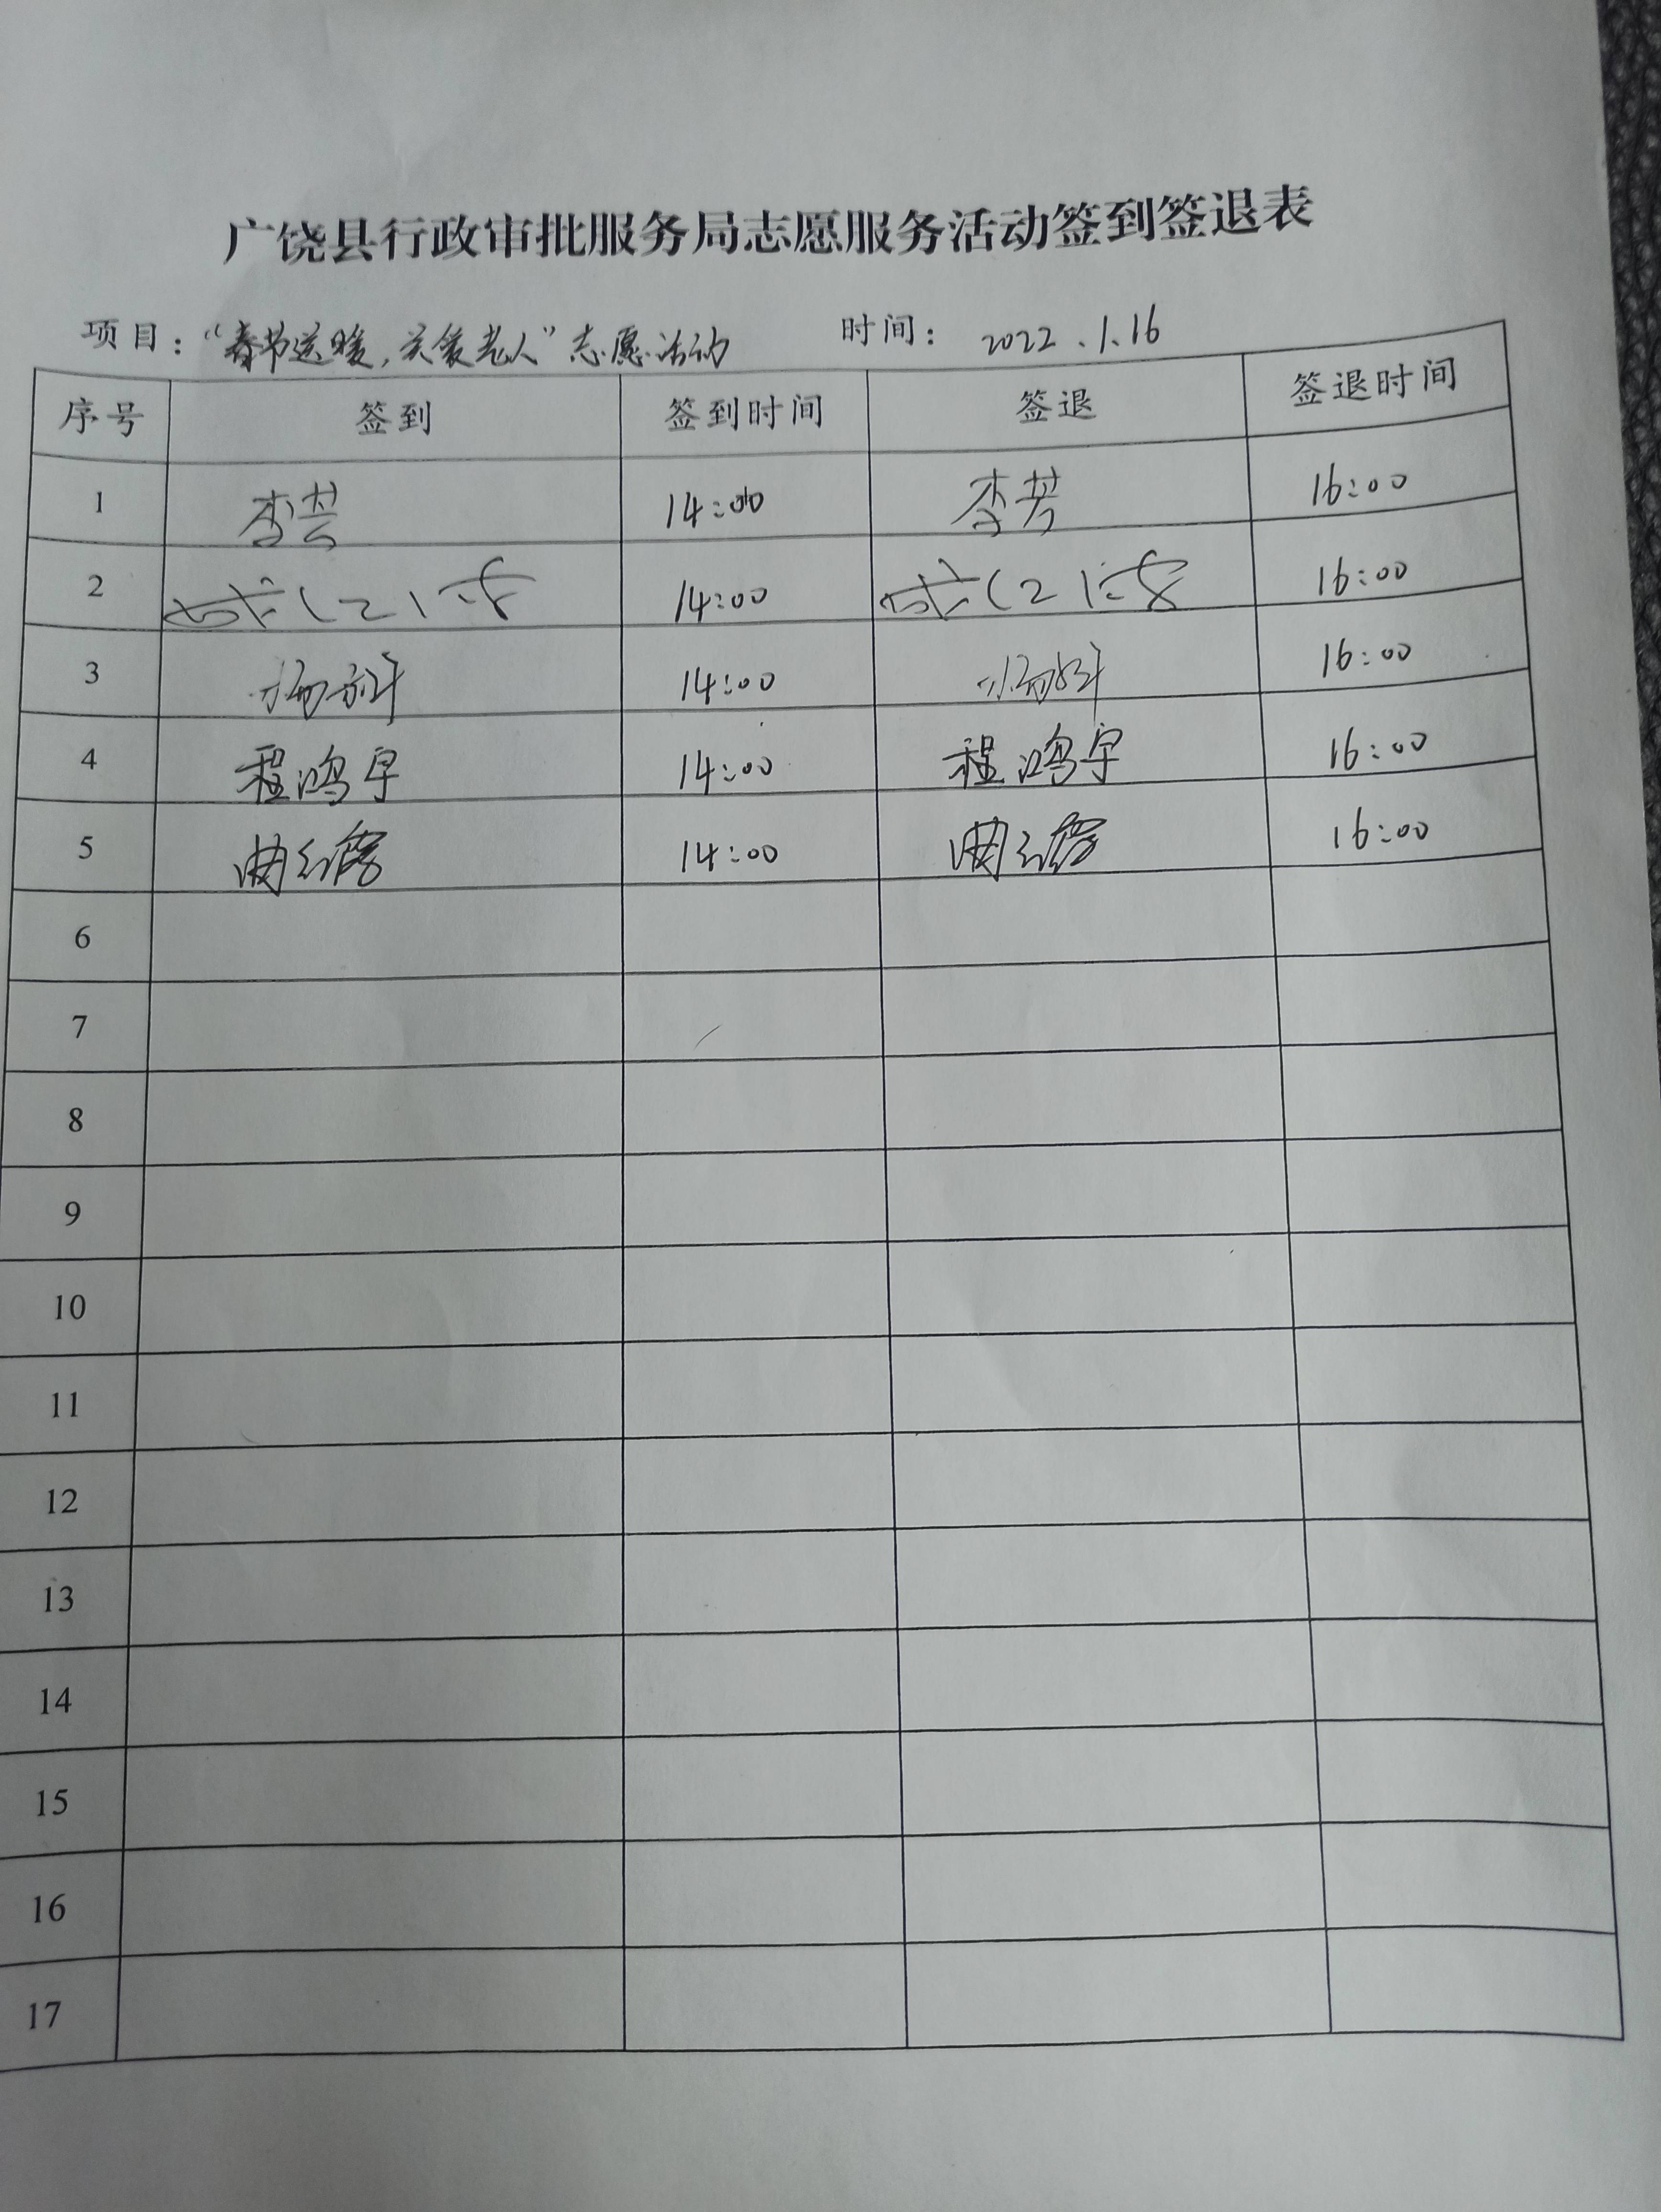 广饶县行政审批服务局志愿服务活动签到签退表
项目：“春节送暖，关爱老人”志愿活动 时间：2022.1.16
序号 签到 签到时间 签退 签退时间
1 李芸 14:00 李芳 16:00
2 14:00 16:00
3 14:00 16:00
4 程鸿宇 14:00 程鸿宇 16:00
5 14:00 16:00
6
7
8
9
10
11
12
13
14
15
16
17